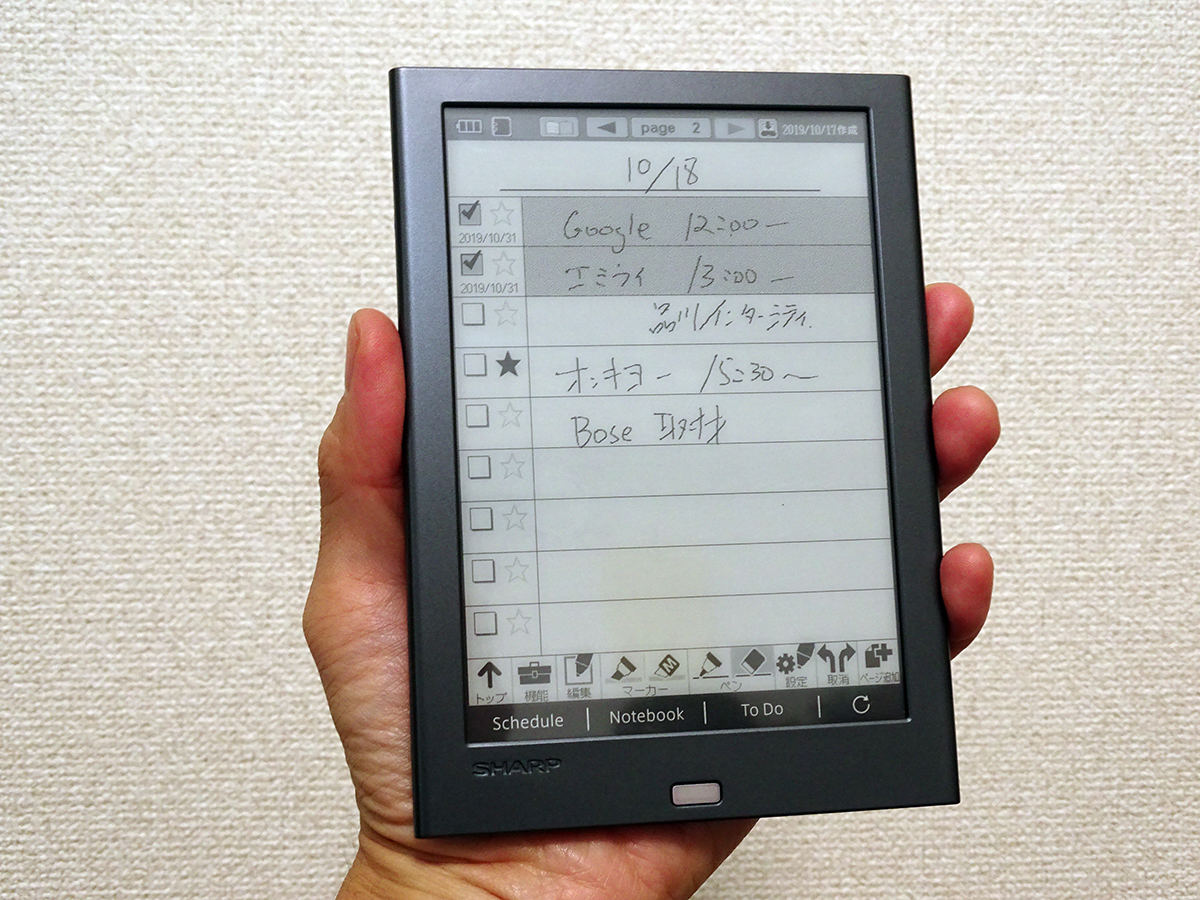 page 2 2019/10/17作成
10/18
Google 12:00〜
2019/10/31
エミライ 13:00〜
2019/10/31
品川インターシティ
オンキヨー 15:30〜
Bose 取材
トップ 機能 編集 マーカー ペン 設定 取消 ページ追加
Schedule | Notebook | To Do
SHARP